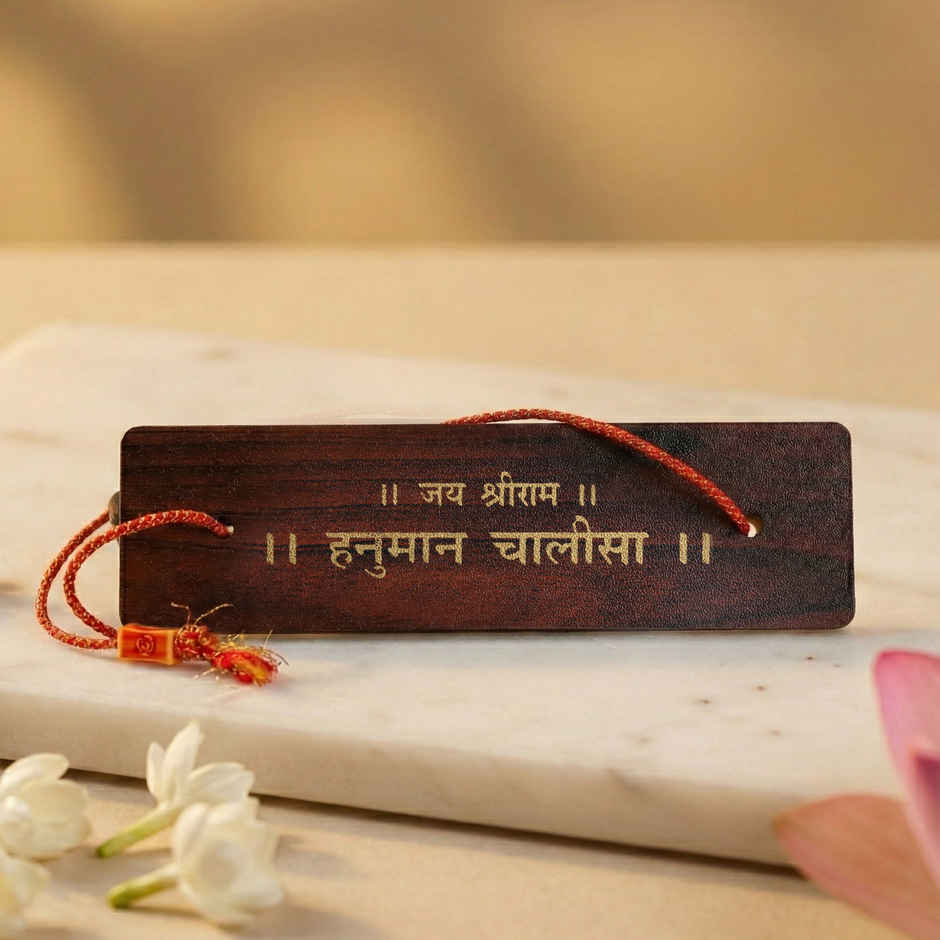 ।। जय श्रीराम ।।
।। हनुमान चालीसा ।।